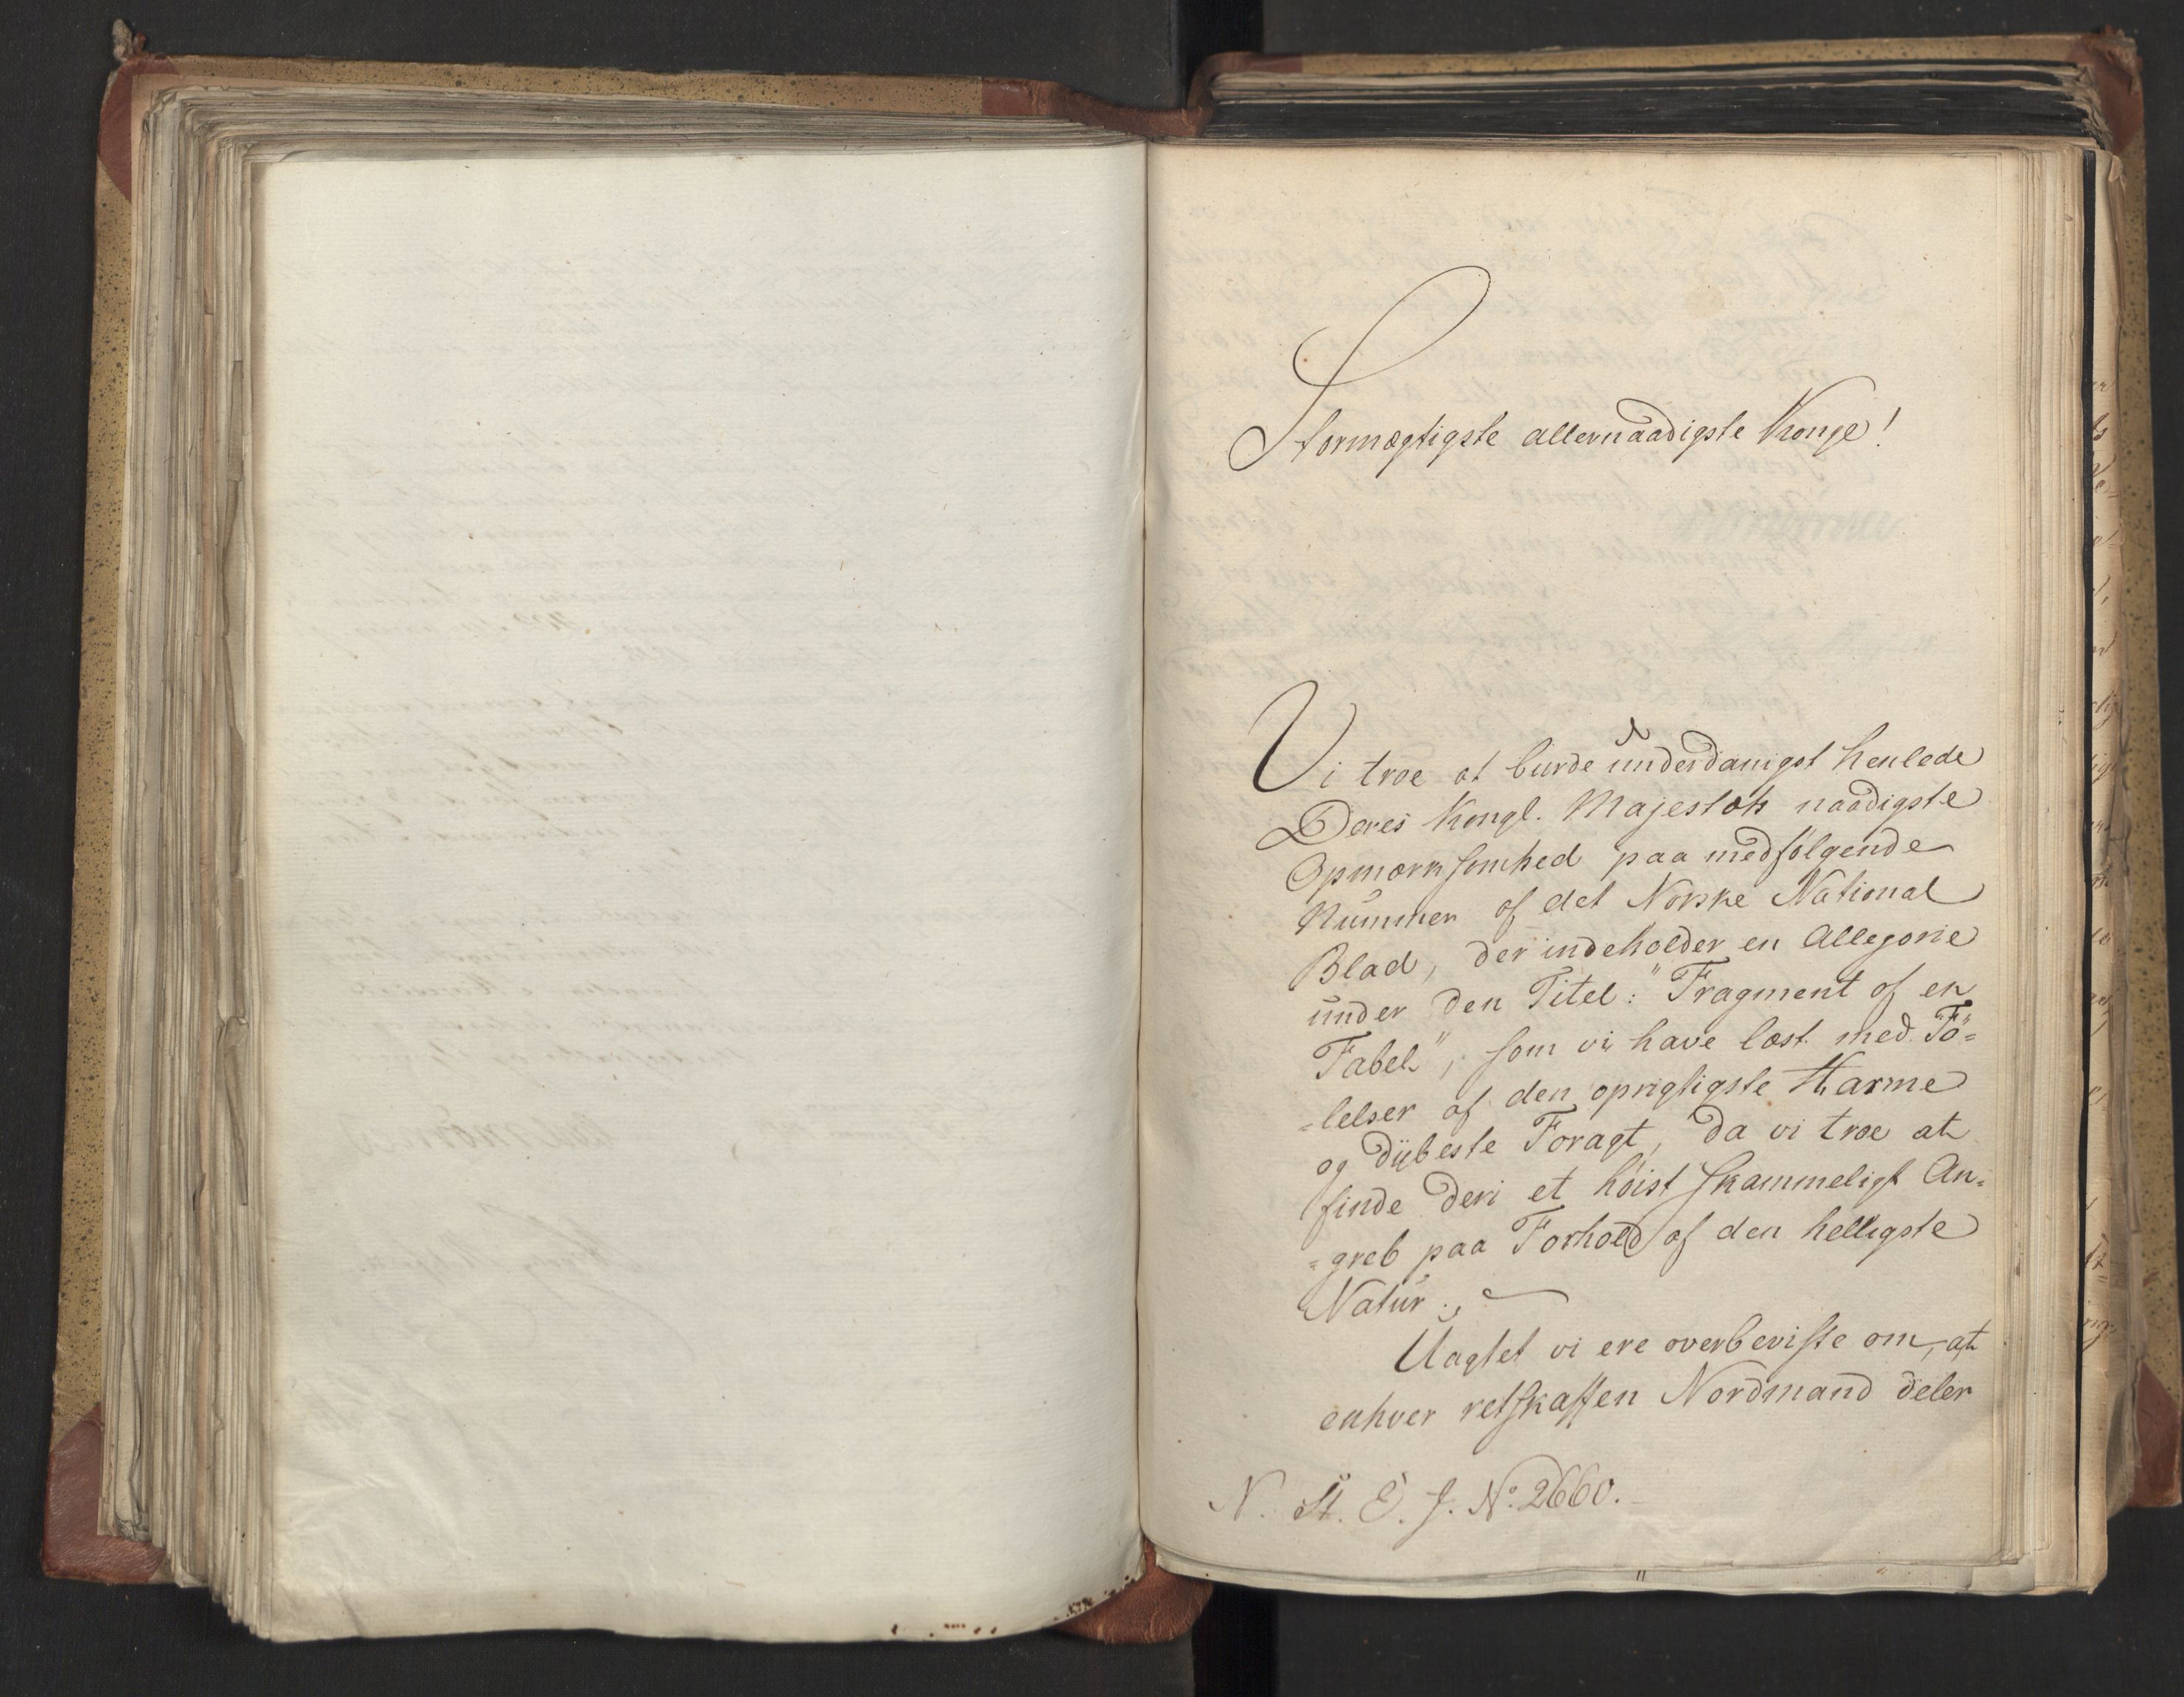 Stormægtigste allernaadigste Konge!
Vi troe at burde underdanigst henlede
Deres Kongl. Majestæts naadigste
Opmærksomhed paa medfølgende
Nummer af det Norske National
Blad, der indeholder en Allegorie
under den Titel: "Fragment af en
Fabel", som vi have læst med Fø=
=lelser af den oprigtigste Harme
og dybeste Foragt, da vi troe at
finde deri et høist skammeligt An=
=greb paa Forhold af den helligste
Natur.,
Uagtet vi ere overbeviste om, at
enhver retskaffen Nordmand deler
N. St. E. J. No. 2660.